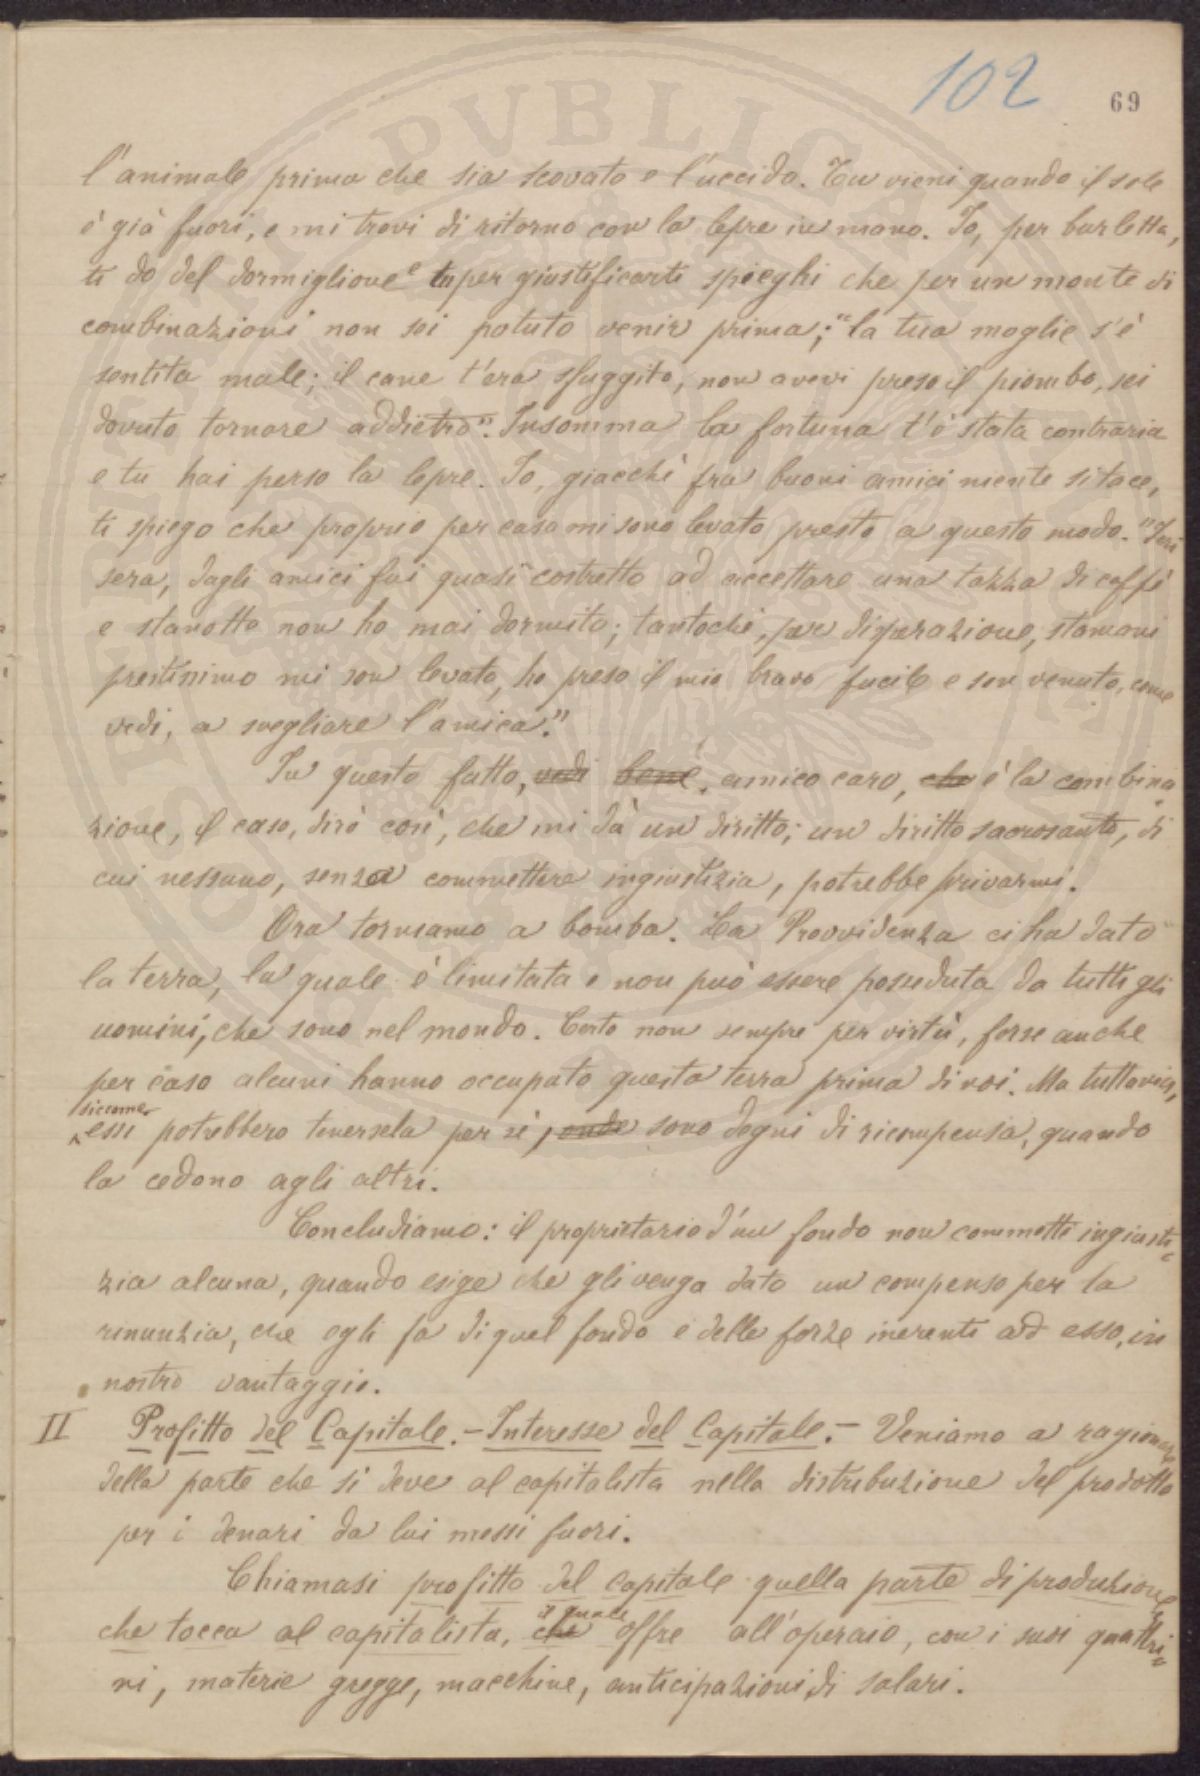 102
69
l'animale prima che sia scovato e l'uccido. Tu vieni quando il sole
è già fuori, e mi trovi di ritorno con la lepre in mano. Io, per burletta,
ti do del dormiglione e tu per giustificarti spieghi che per un monte di
combinazioni non sei potuto venir prima; "la tua moglie s'è
sentita male; il cane t'era sfuggito, non avevi preso il piombo, sei
dovuto tornare addietro". Insomma la fortuna t'è stata contraria
e tu hai perso la lepre. Io, giacchè fra buoni amici niente si tace,
ti spiego che proprio per caso mi sono levato presto a questo modo. "Ieri
sera, dagli amici fui quasi costretto ad accettare una tazza di caffè
e stanotte non ho mai dormito; tantochè, per disperazione, stamani
prestissimo mi son levato, ho preso il mio bravo fucile e son venuto, come
vedi, a svegliare l'amica."
In questo fatto, vedi bene, amico caro, che è la combina
zione, il caso, dirò così, che mi dà un diritto; un diritto sacrosanto, di
cui nessuno, senza commettere ingiustizia, potrebbe privarmi.
Ora torniamo a bomba. La Provvidenza ci ha dato
la terra, la quale è limitata e non può essere posseduta da tutti gli
uomini, che sono nel mondo. Certo non sempre per virtù, forse anche
per caso alcuni hanno occupato questa terra prima di noi. Ma tuttavia,
siccome
essi potrebbero tenersela per sè, onde sono degni di ricompensa, quando
la cedono agli altri.
Concludiamo: il proprietario d'un fondo non commette ingiusti=
zia alcuna, quando esige che gli venga dato un compenso per la
rinunzia, che egli fa di quel fondo e delle forze inerenti ad esso, in
nostro vantaggio.
II Profitto del Capitale. - Interesse del Capitale. - Veniamo a ragionare
della parte che si deve al capitalista nella distribuzione del prodotto
per i denari da lui messi fuori.
Chiamasi profitto del capitale quella parte di produzione
che tocca al capitalista, che il quale offre all'operaio, con i suoi quattri=
ni, materie gregge, macchine, anticipazioni di salari.